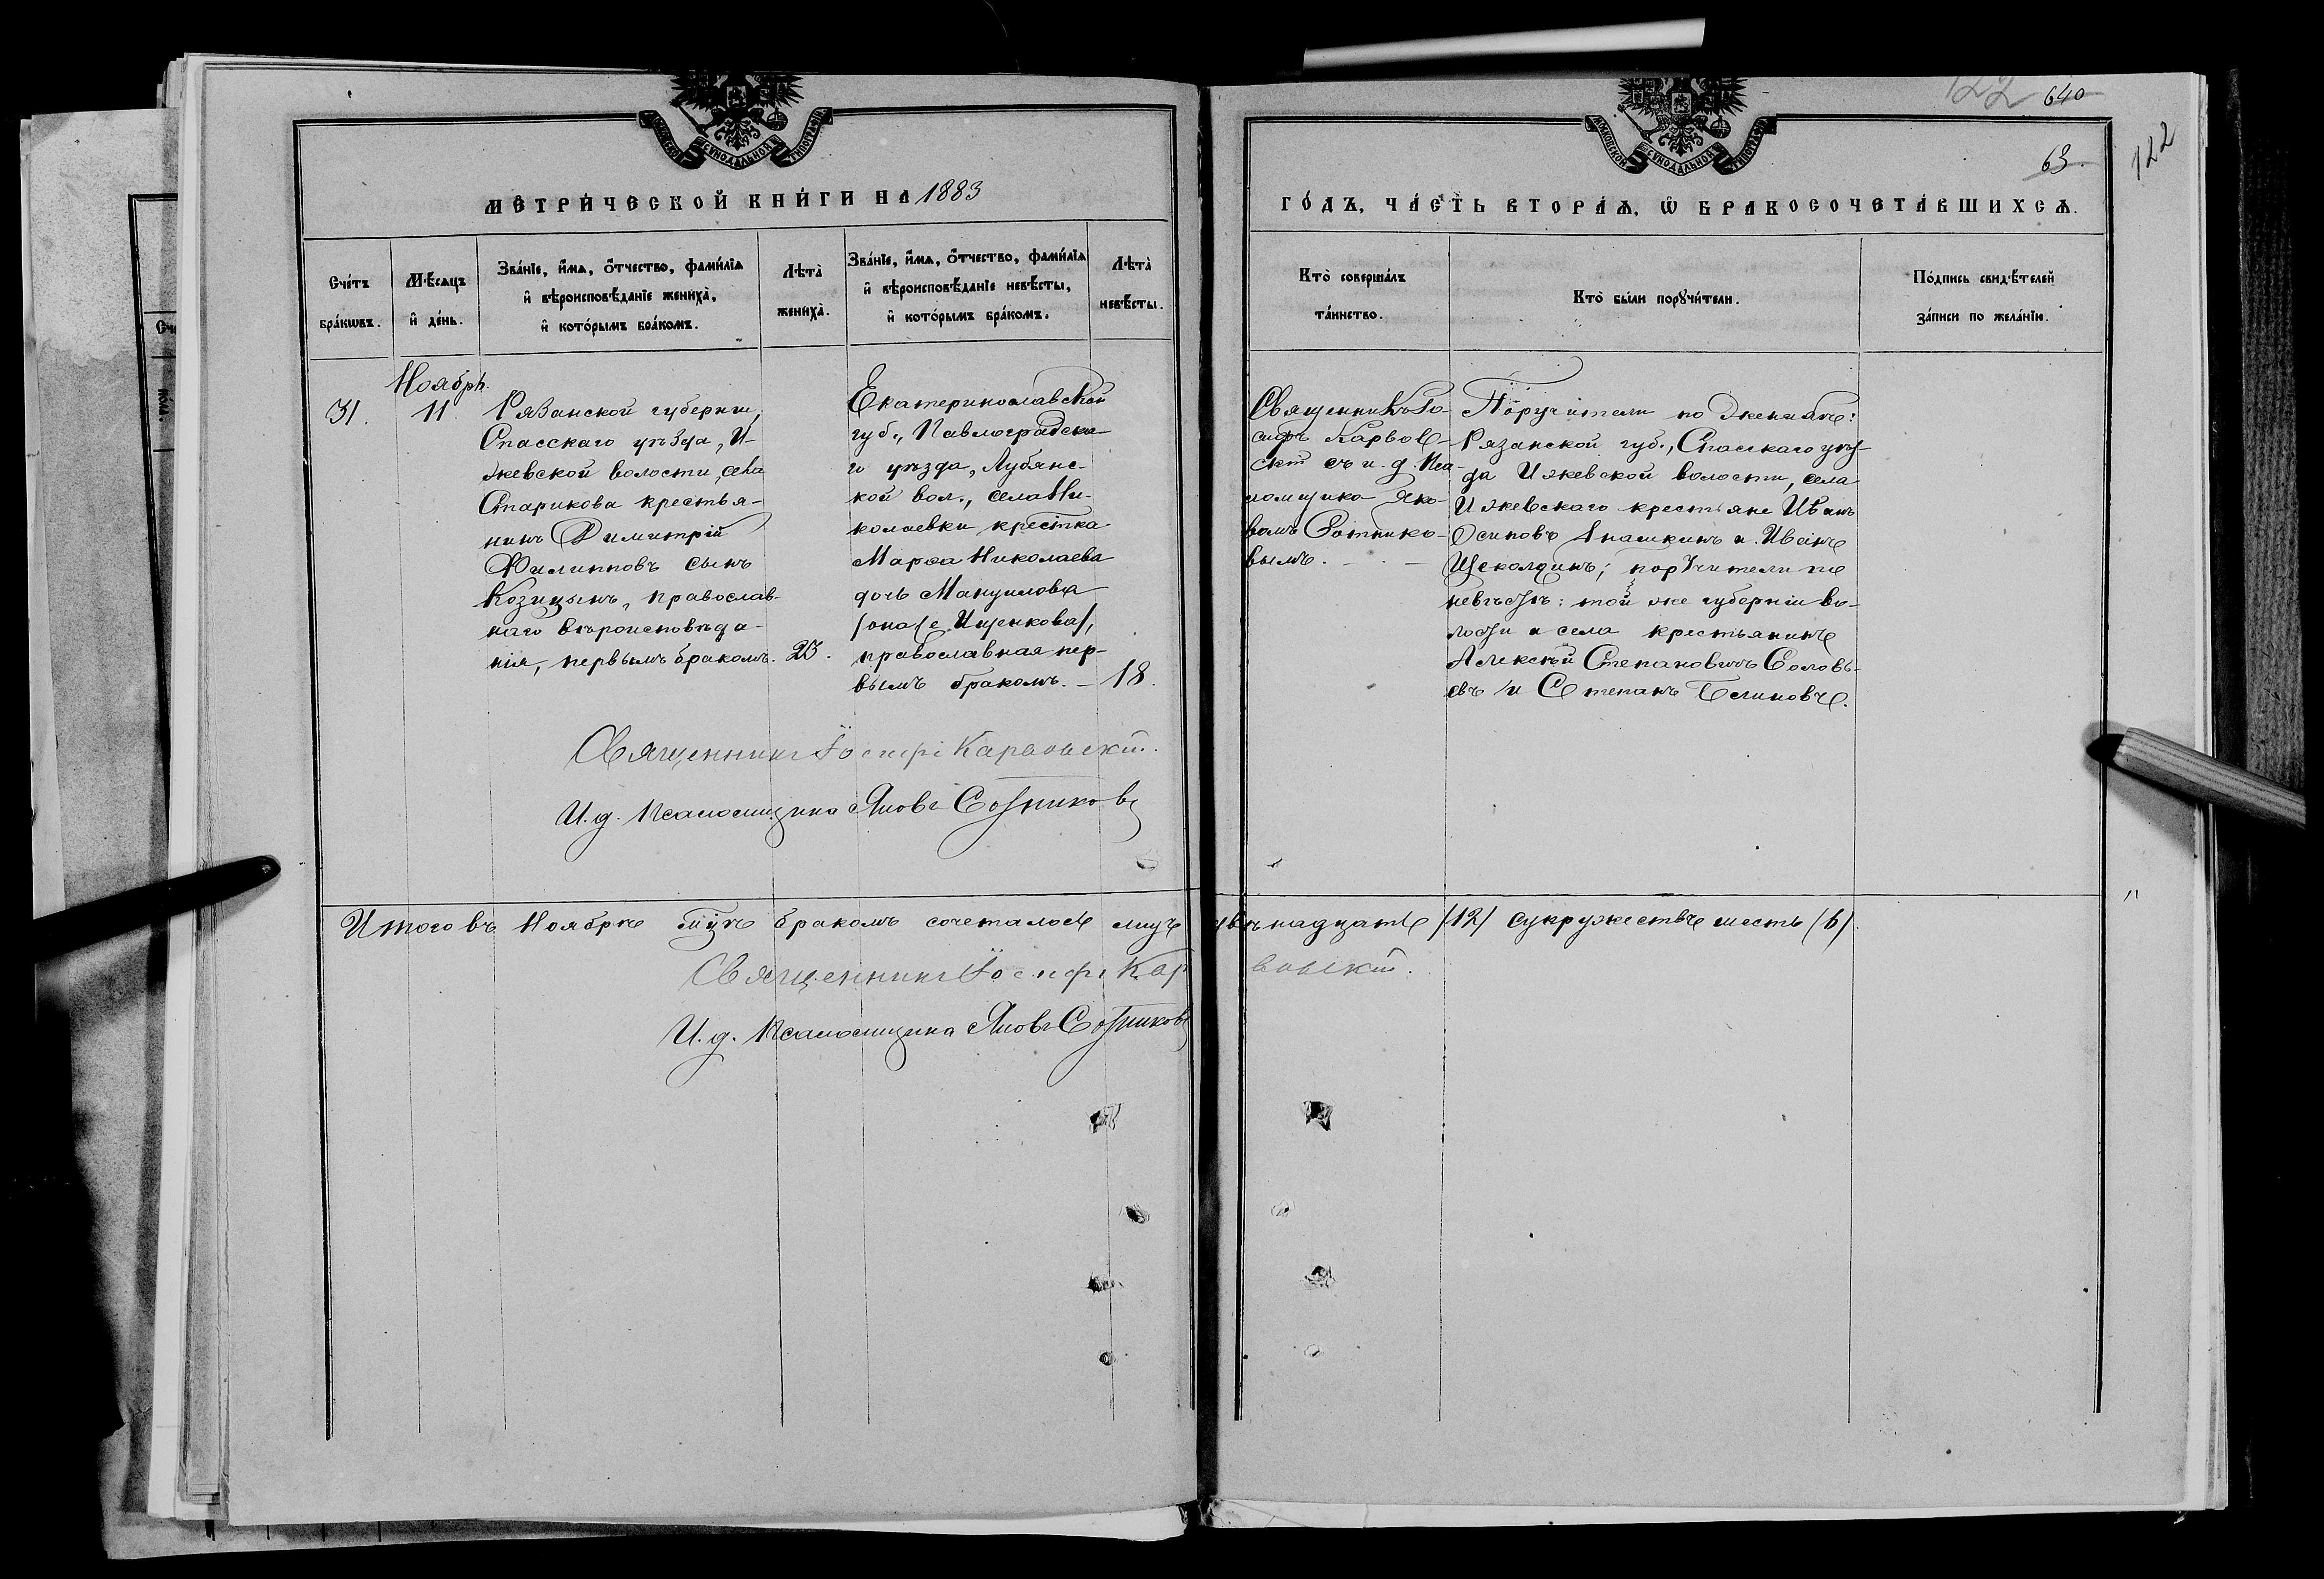 122 640
63.
122
МОСКОВСКОЙ СѴНОДАЛЬНОЙ ТИПОГРАФІИ
МОСКОВСКОЙ СѴНОДАЛЬНОЙ ТИПОГРАФІИ
МЕТРИ́ЧЕСКОЙ КНИ́ГИ НА 1883
ГО́ДЪ, ЧА́СТЬ ВТОРА́Ѧ, Ѡ҆ БРАКОСОЧЕТА́ВШИХСѦ.
Сче́тъ
бра́кѡвъ.
Мѣ́сѧцъ
и҆ де́нь.
Зва́нїе, и҆́мѧ, ѻ҆́тчество, фами́лїѧ
и҆ вѣроисповѣ́данїе жениха̀,
и҆ кото́рымъ бра́комъ.
Лѣта̀
жениха̀.
Зва́нїе, и҆́мѧ, ѻ҆́тчество, фами́лїѧ
и҆ вѣроисповѣ́данїе невѣ́сты,
и҆ кото́рымъ бра́комъ.
Лѣта̀
невѣ́сты.
Кто̀ соверша́лъ
та́инство.
Кто̀ бы́ли порꙋчи́тели.
По́дпись свидѣ́телей
за́писи по жела́нїю.
Ноябрь.
31. 11.
Рязанской губерніи,
Спасскаго уѣзда, И-
жевской волости, села
Старикова крестья-
нинъ Димитрій
Филипповъ сынъ
Козицынъ, православ-
наго вѣроисповѣда-
нія, первымъ бракомъ. 25.
Екатеринославской
губ., Павлоградска-
го уѣзда, Лубянс-
кой вол., села Ни-
колаевки крестка
Марѳа Николаева
дочь Мануилова
/она же Ищенкова/,
православная пер-
вымъ бракомъ. – 18.
Священникъ Іо-
сифъ Карвов-
скій съ и. д. Пса-
ломщика Яко-
вомъ Сотнико-
вымъ. –
Поручители по женихѣ:
Рязанской губ., Спасскаго уѣз-
да Ижевской волости, села
Ижевскаго крестьяне Иванъ
Осиповъ Анашкинъ и Иванъ
Щеколдинъ; поручители по
невѣстѣ: той же губерніи во-
лости и села крестьянинъ
Алексѣй Степановичъ Соловь-
евъ и Степанъ
Священникъ Іосифъ Карвовскій.
И. д. Псаломщика Яковъ Сотниковъ
Итого въ Ноябрѣ мцѣ бракомъ сочеталось лицъ двѣнадцать /12/ супружествъ шесть /6/.
Священникъ Іосифъ Карвовскій.
И. д. Псаломщика Яковъ Сотниковъ